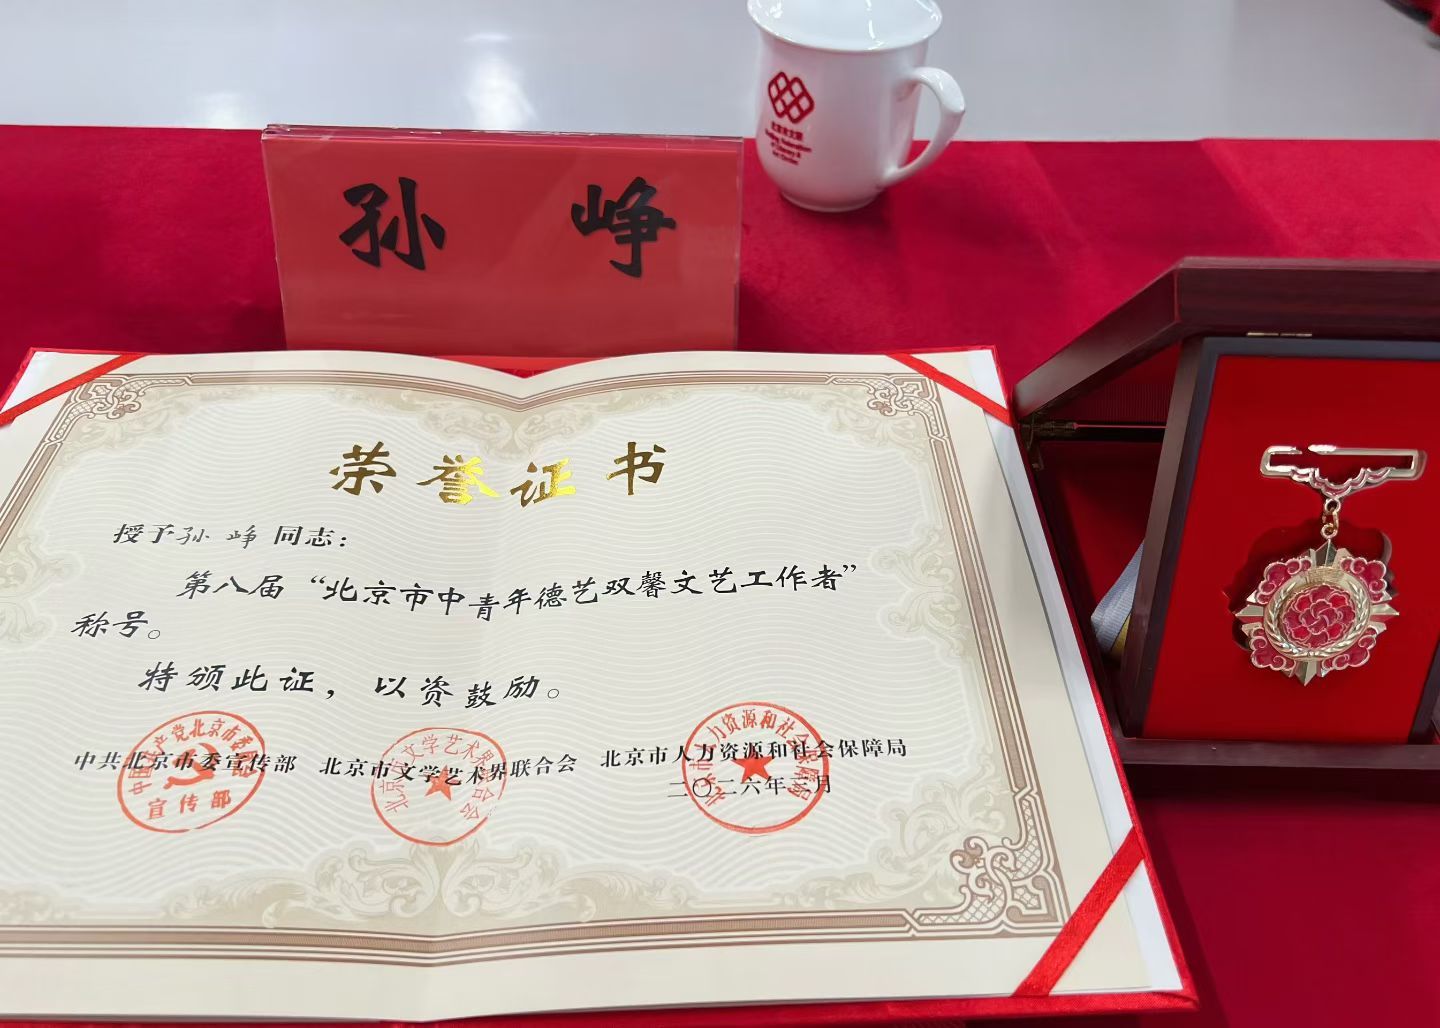 北京市文联
孙 峥
荣誉证书
授予孙 峥 同志：
第八届“北京市中青年德艺双馨文艺工作者”
称号。
特颁此证，以资鼓励。
中共北京市委宣传部 北京市文学艺术界联合会 北京市人力资源和社会保障局
二〇二六年三月
中国共产党北京市委员会
宣传部
北京市文学艺术界联合会
北京市人力资源和社会保障局